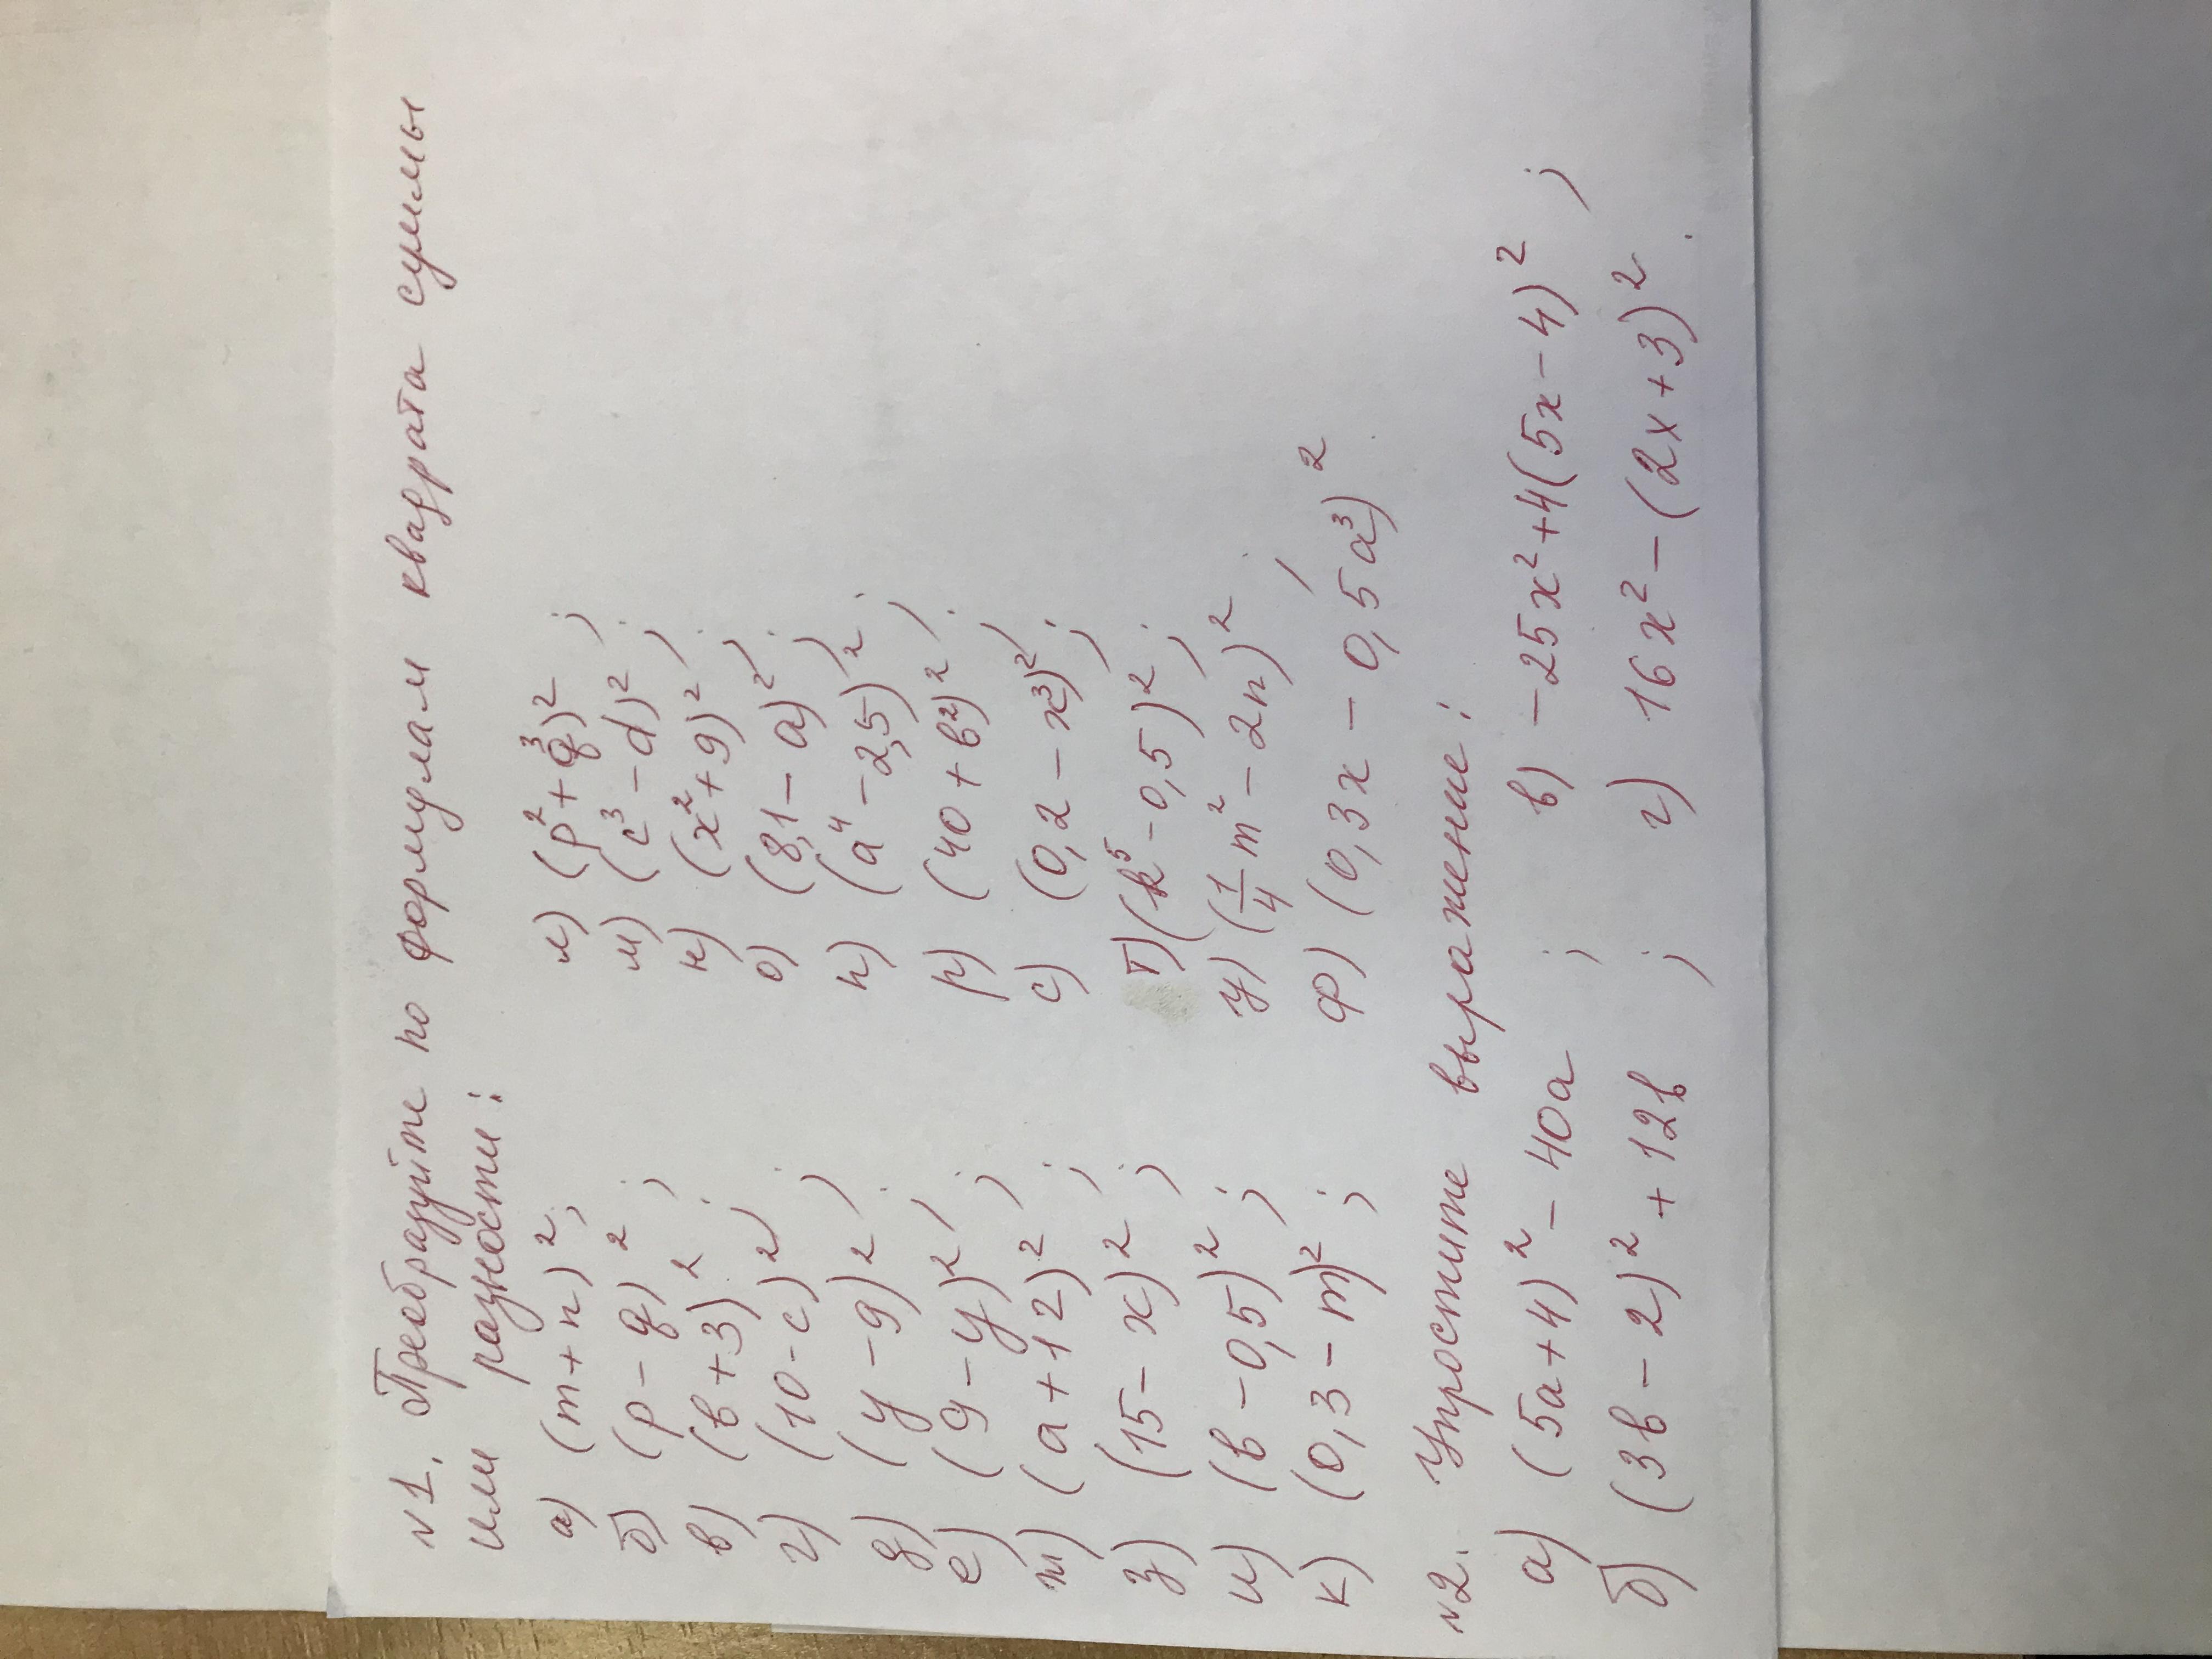 №1. Преобразуйте по формулам квадрата суммы
или разности:
а) (m+n)²;
б) (p-q)²;
в) (в+3)²;
г) (10-с)²;
д) (y-9)²;
е) (9-y)²;
ж) (a+12)²;
з) (15-x)²;
и) (в-0,5)²;
к) (0,3-m)²;
л) (p²+q³)²;
м) (c³-d)²;
н) (x²+9)²;
о) (8,1-a)²;
п) (a⁴-2,5)²;
р) (40+в²)²;
с) (0,2-x³)²;
т) (k⁵-0,5)²;
у) (1/4 m²-2n)²;
ф) (0,3x-0,5a³)².
№2. Упростите выражение:
а) (5a+4)²-40a ;
б) (3в-2)²+12в ;
в) -25x²+4(5x-4)² ;
г) 16x²-(2x+3)².